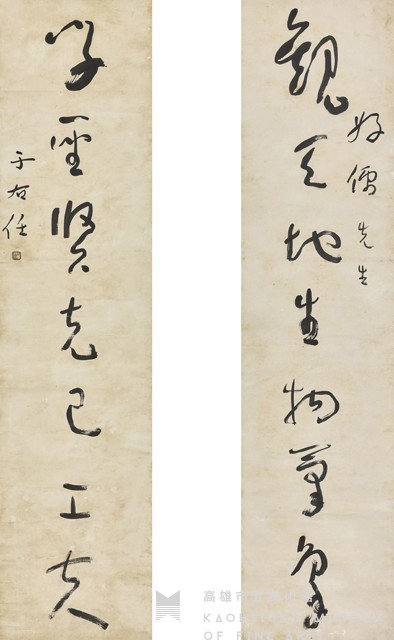 觀天地生物氣象
好儒先生
學聖賢克己工夫
于右任
高雄市立美術館
KAOHSIUNG MUSEUM
OF FINE ARTS